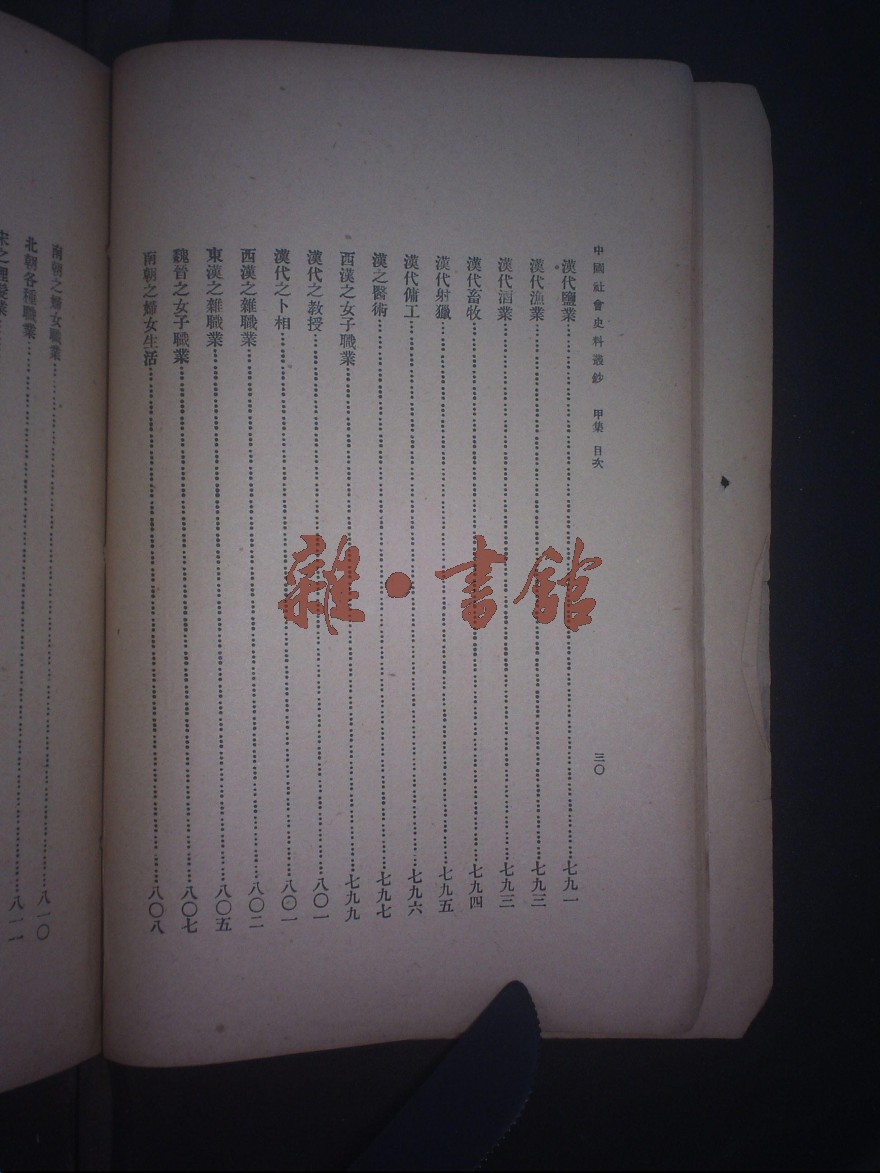 中國社會史料叢鈔 甲集 目次 三〇
漢代鹽業……七九一
漢代漁業……七九三
漢代酒業……七九三
漢代畜牧……七九四
漢代射獵……七九五
漢代傭工……七九六
漢之醫術……七九七
西漢之女子職業……七九九
漢代之教授……八〇一
漢代之卜相……八〇一
西漢之雜職業……八〇二
東漢之雜職業……八〇五
魏晉之女子職業……八〇七
南朝之婦女生活……八〇八
南朝之婦女職業……八一〇
北朝各種職業……八一一
雜·書館